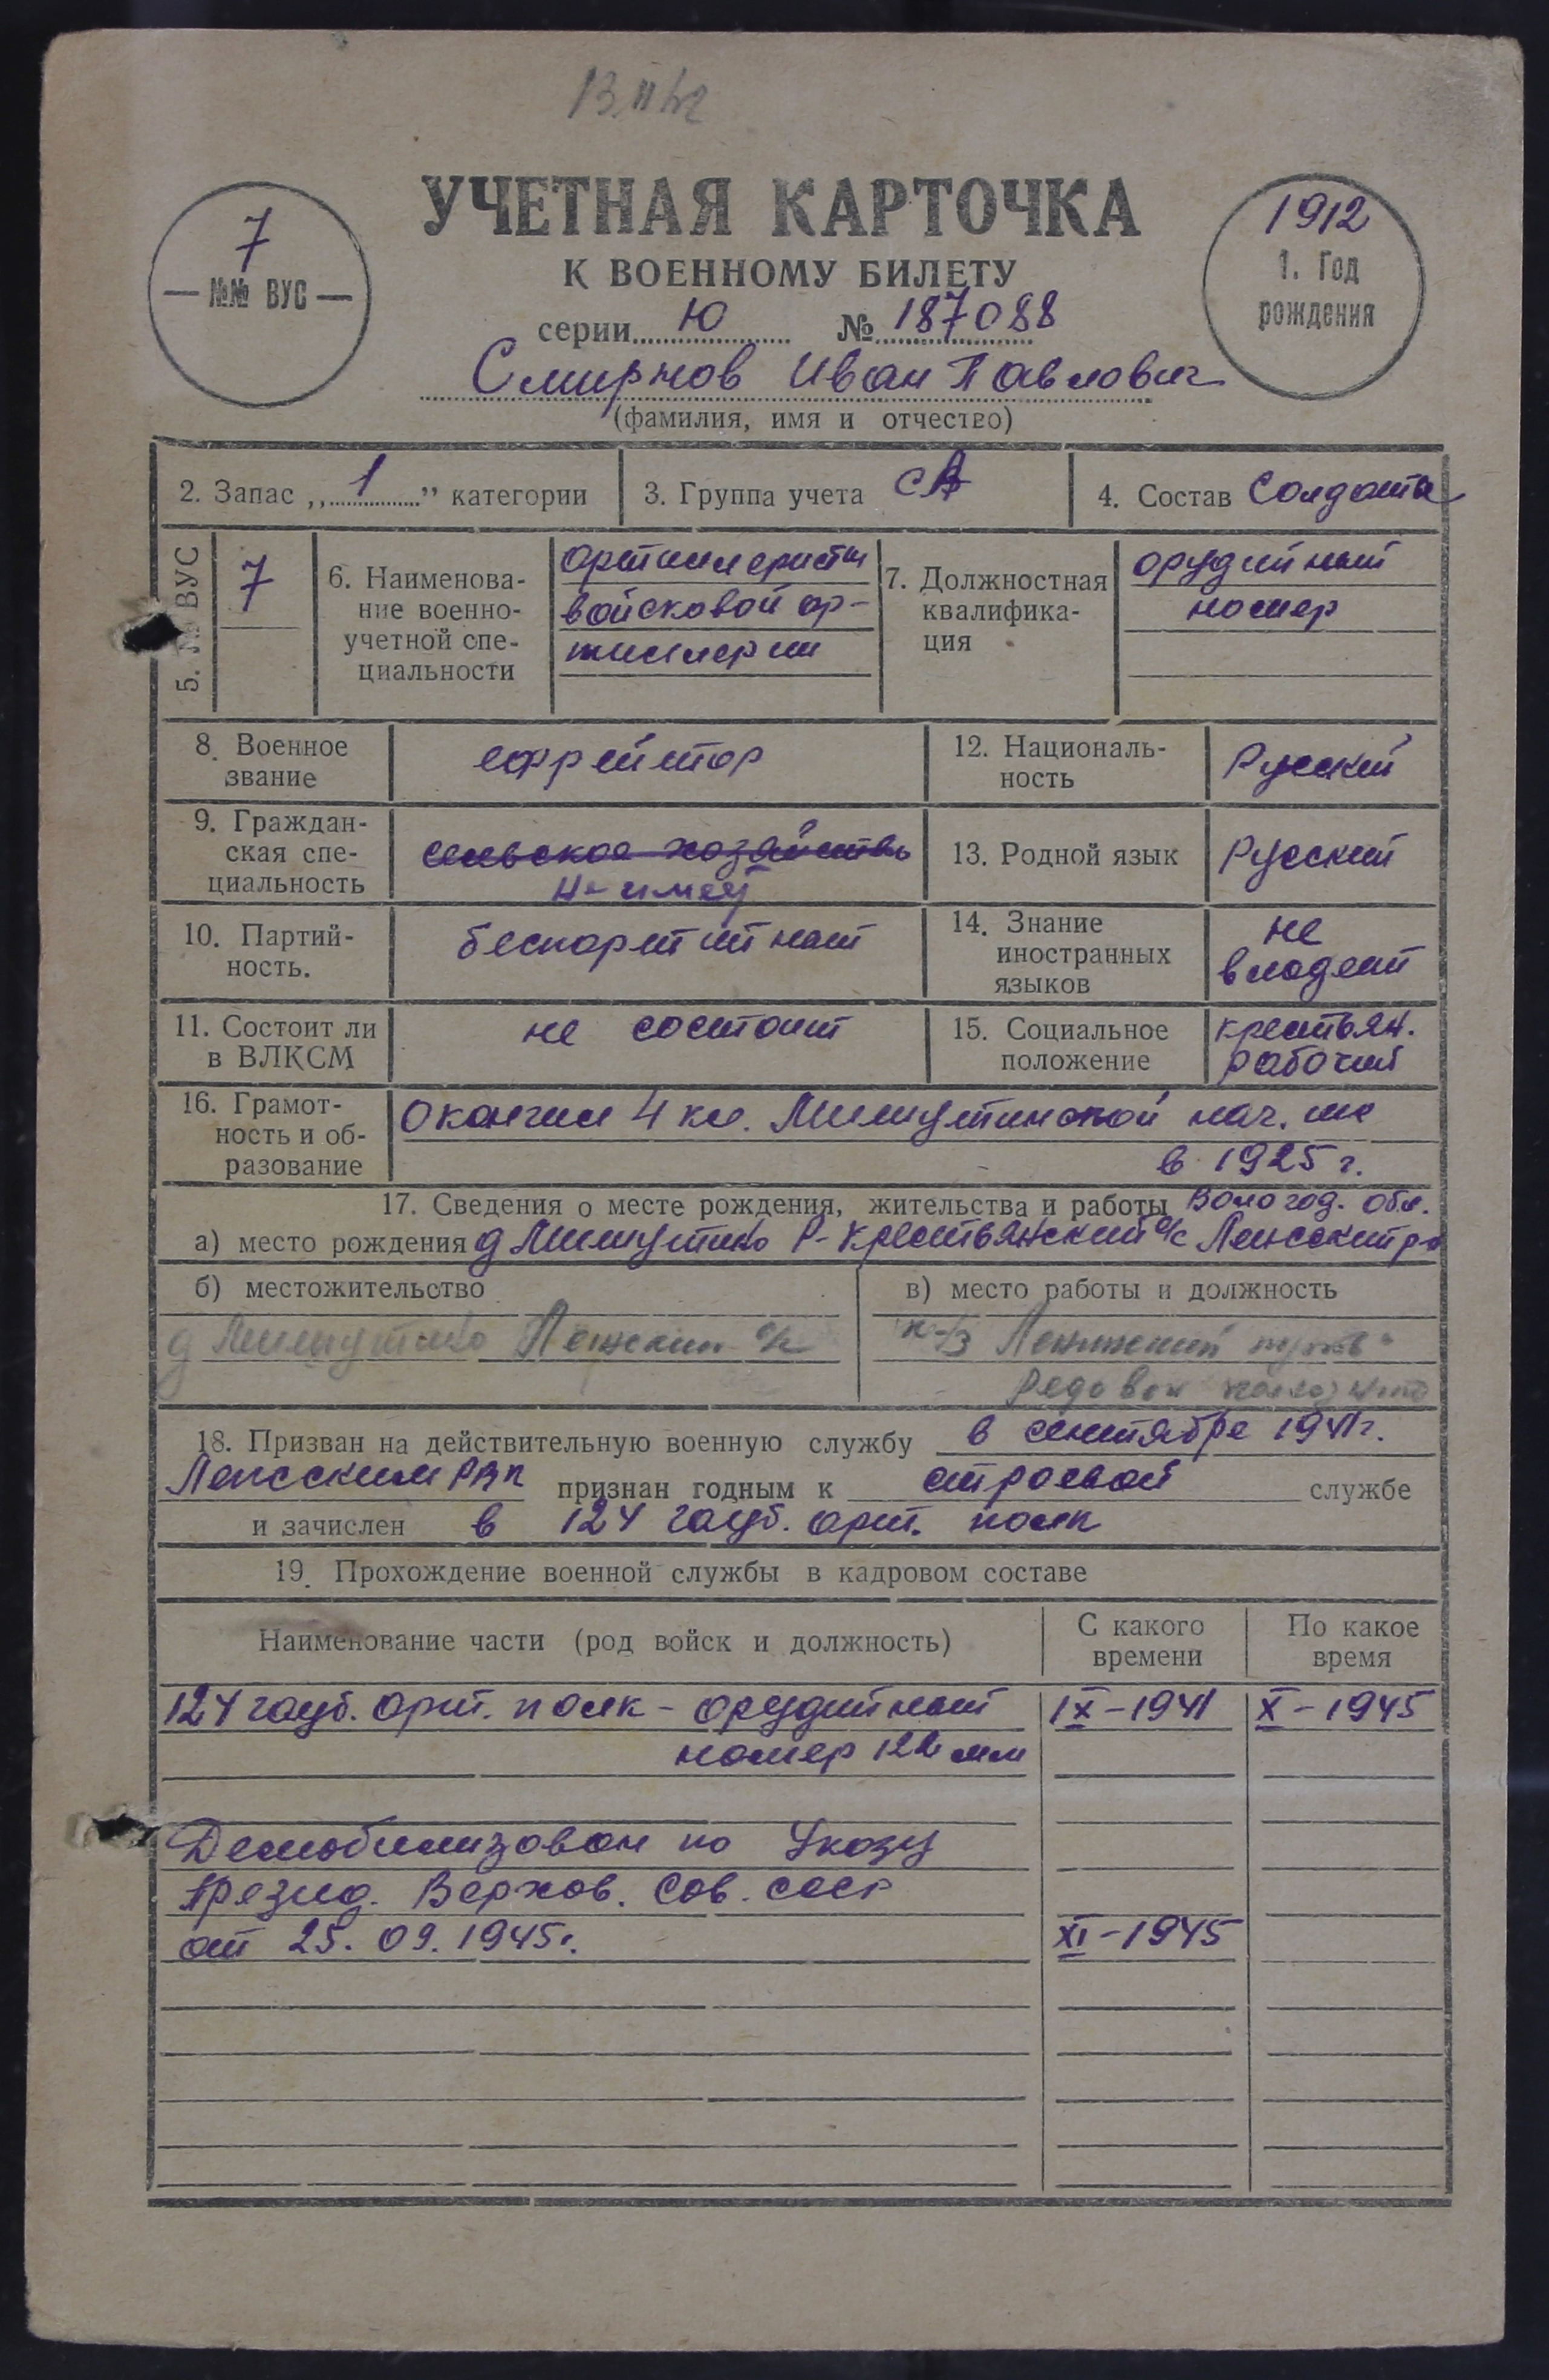 УЧЕТНАЯ КАРТОЧКА
К ВОЕННОМУ БИЛЕТУ
7
№№ ВУС
1912
1. Год
рождения
серии Ю № 187088
Смирнов Иван Павлович
(фамилия, имя и отчество)
2. Запас „ 1 ” категории
3. Группа учета СА
4. Состав Солдаты
5. № ВУС
7
6. Наименова-
ние военно-
учетной спе-
циальности
артиллеристы
войсковой ар-
тиллерии
7. Должностная
квалифика-
ция
орудийный
номер
8. Военное
звание
ефрейтор
12. Националь-
ность
Русский
9. Граждан-
ская спе-
циальность
сельское хозяйство
не имеет
13. Родной язык
Русский
10. Партий-
ность.
беспартийный
14. Знание
иностранных
языков
не
владеет
11. Состоит ли
в ВЛКСМ
не состоит
15. Социальное
положение
крестьян.
рабочий
16. Грамот-
ность и об-
разование
Окончил 4 кл. нач. шк
в 1925 г.
17. Сведения о месте рождения, жительства и работы Вологод. обл.
а) место рождения д Р-Крестьянский с/с
б) местожительство
д с/с
в) место работы и должность
к-з Ленинский путь
Рядовой колхозник
18. Призван на действительную военную службу в сентябре 1941г.
РВК признан годным к строевой службе
и зачислен в 124 гауб. арт. полк
19. Прохождение военной службы в кадровом составе
Наименование части (род войск и должность)
С какого
времени
По какое
время
124 гауб. арт. полк - орудийный IX-1941 X-1945
номер 122 мм
Демобилизован по Указу
Презид. Верхов. Сов. СССР
от 25.09.1945г. XI-1945